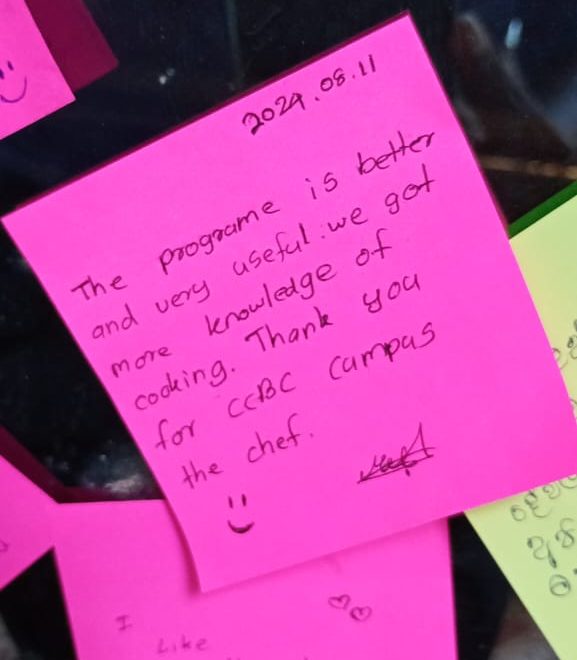 2024.08.11
The programe is better
and very useful. we got
more knowledge of
cooking. Thank you
for CCBC Campus
the chef.
I
Like